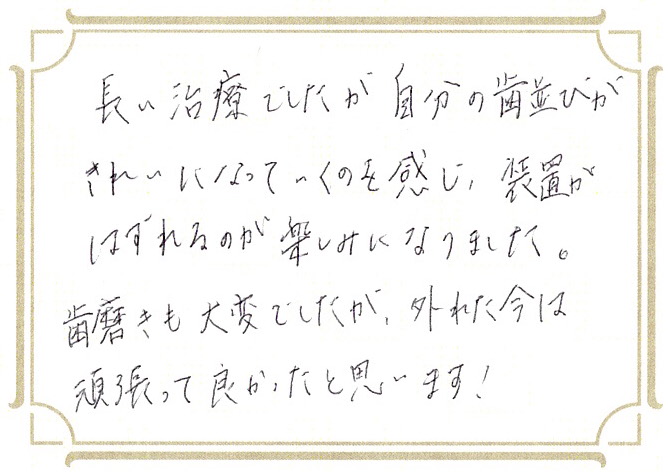 長い治療でしたが自分の歯並びが
きれいになっていくのを感じ、装置が
はずれるのが楽しみになりました。
歯磨きも大変でしたが、外れた今は
頑張って良かったと思います！